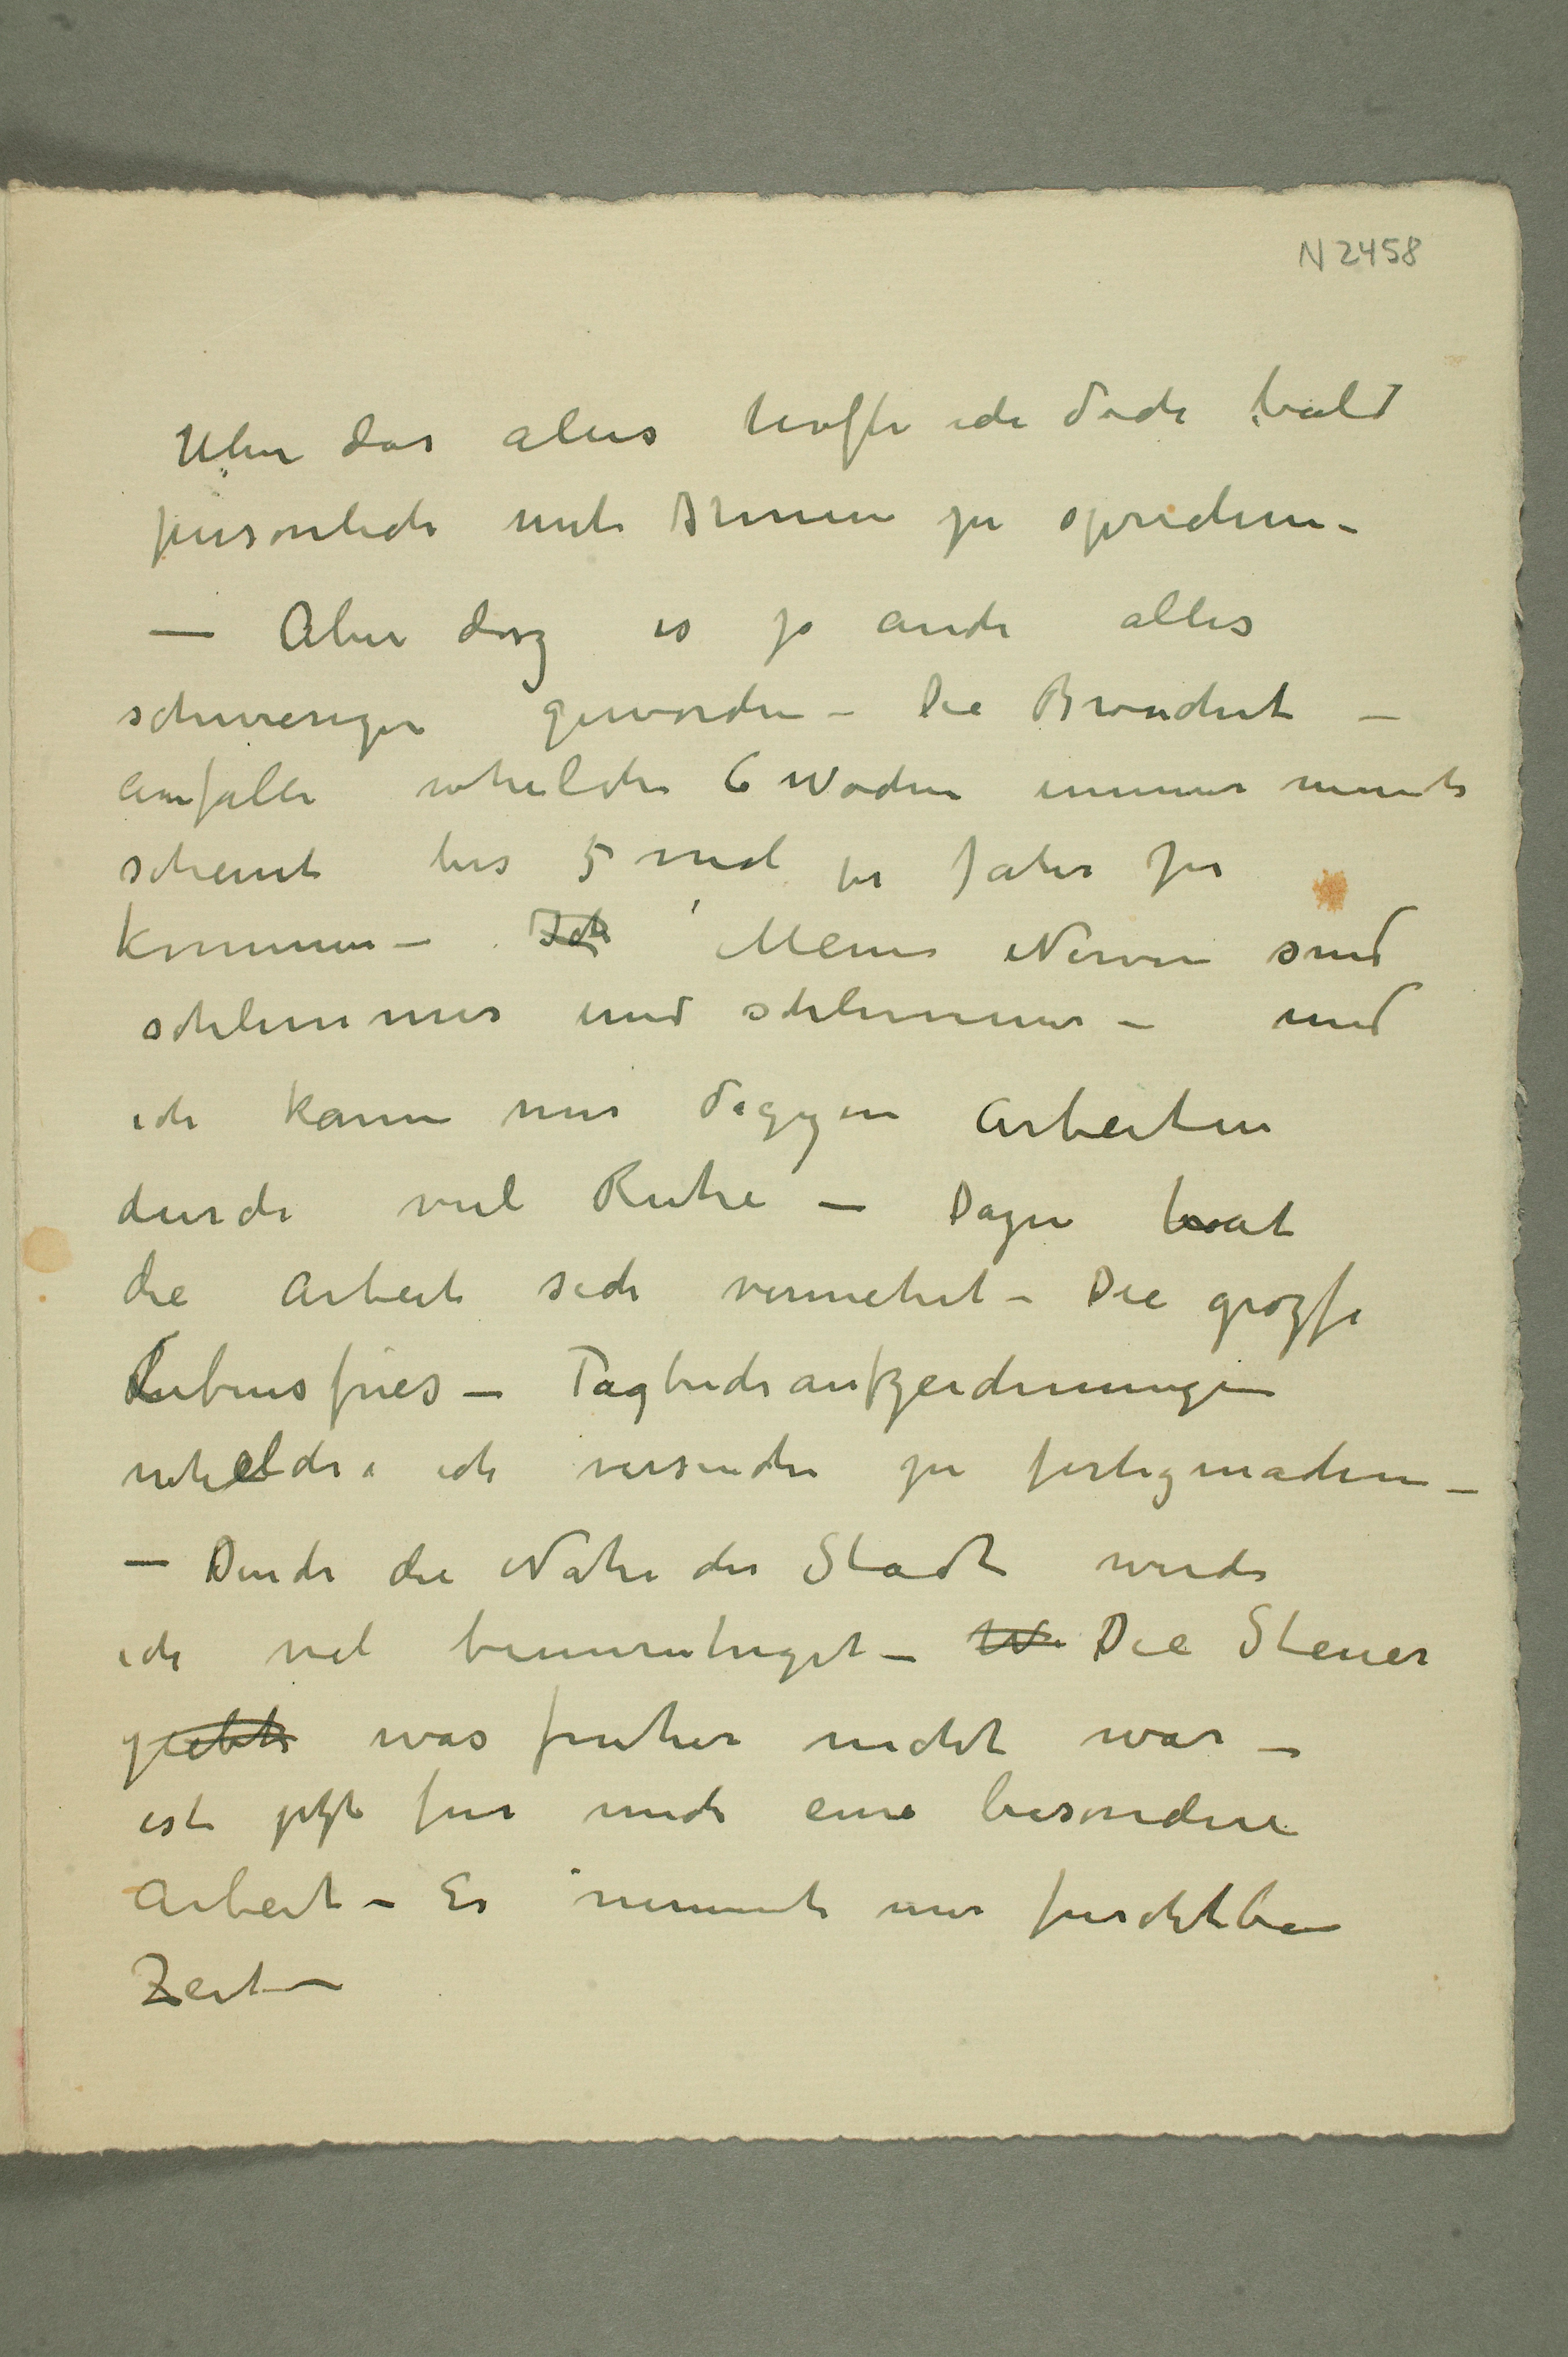 N 2458
Uber das alles hoffe ich doch bald
personlich mit Ihnen zu sprechen –
— Aber dasz es ja auch alles
schwieriger geworden – Die Bronchit –
anfälle whelche 6 Wochen immer nimmt
scheint bis 5 mal pr Jahr zu
kommen – Ich Meine Nerven sind
schlimmer und schlimmer – und
ich kann nur dagegen arbeiten
durch viel Ruhe – Dazu hat
die Arbeit sich vermehrt – Die grozse
Lebensfries – Tagbuchaufzeichnungen
whelche ich versuche zu fertigmachen –
— Durch die Nähe der Stadt werde
ich viel beunruhiget – W Die Steuer
giebt was fruher nicht war –
ist jetzt fur mich eine besondere
Arbeit – Es nimmt mir furchtbar
Zeit –